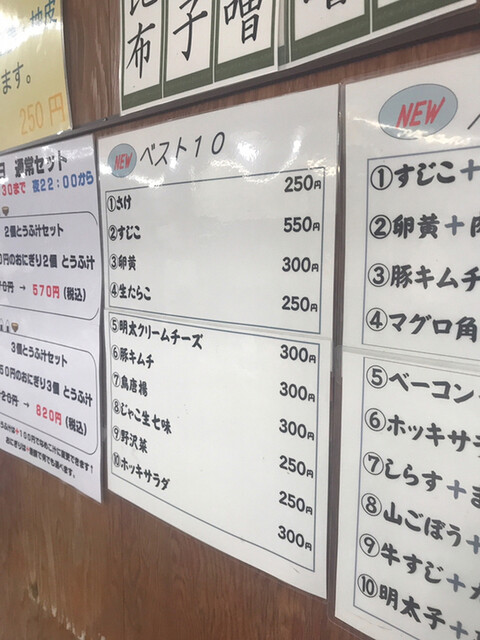 昆布
子
噌
ます。
250円
日 通常セット
30まで 夜22:00から
2個とうふ汁セット
0円のおにぎり2個 とうふ汁
→ 570円(税込)
3個とうふ汁セット
50円のおにぎり3個 とうふ汁
→ 820円(税込)
NEW ベスト10
①さけ 250円
②すじこ 550円
③卵黄 300円
④生たらこ 250円
⑤明太クリームチーズ 300円
⑥豚キムチ 300円
⑦鳥唐揚 300円
⑧じゃこ生七味 250円
⑨野沢菜 250円
⑩ホッキサラダ 300円
NEW
①すじこ+
②卵黄+
③豚キムチ
④マグロ角
⑤ベーコン
⑥ホッキサ
⑦しらす+
⑧山ごぼう+
⑨牛すじ+
⑩明太子+